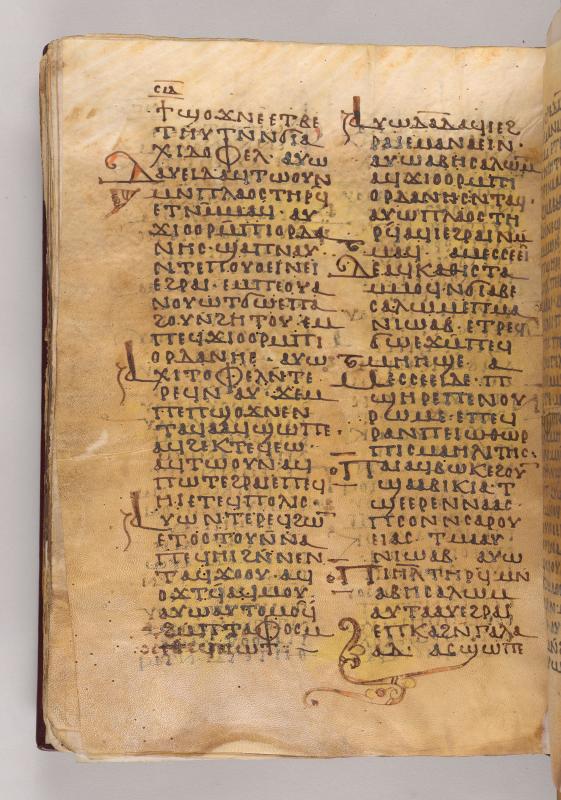 ⲥⲓⲇ
ϯϣⲟϫⲛⲉ ⲉⲧⲃⲉ
ⲧⲏⲩⲧⲛ ⲛϭⲓⲁ
ϫⲓⲇⲟⲫⲉⲗ· ⲁⲩⲱ
ⲇⲁⲩⲉⲓⲇ ⲁϥⲧⲱⲟⲩⲛ
ⲙⲛⲡⲗⲁⲟⲥ ⲧⲏⲣϥ
ⲉⲧⲛⲙⲙⲁϥ· ⲁⲩ
ϫⲓⲟⲟⲣ ⲙⲡⲓⲟⲣⲇⲁ
ⲛⲏⲥ· ϣⲁⲡⲛⲁⲩ
ⲛⲧⲉⲡⲟⲩⲟⲉⲓⲛ ⲉⲓ
ⲉϩⲣⲁⲓ· ⲉⲙⲡⲉⲟⲩⲁ
ⲛⲟⲩⲱⲧ ϭⲱ ⲉⲡⲁ
ϩⲟⲩ ⲛϩⲏⲧⲟⲩ· ⲉⲙ
ⲡⲉϥϫⲓⲟⲟⲣ ⲙⲡⲓ
ⲟⲣⲇⲁⲛⲏⲥ· ⲁⲩⲱ
ⲁϫⲓⲧⲟⲫⲉⲗ ⲛⲧⲉ
ⲣⲉϥⲛⲁⲩ ϫⲉⲙ
ⲡⲉⲡϣⲟϫⲛⲉ ⲛ
ⲧⲁϥⲁⲁϥ ϣⲱⲡⲉ·
ⲁϥϩⲉⲕ ⲧⲉϥⲉⲱ
ⲁϥⲧⲱⲟⲩⲛ ⲁϥ
ⲡⲱⲧ ⲉϩⲣⲁⲓ ⲉⲡⲉϥ
ⲏⲓ ⲉⲧⲉϥⲡⲟⲗⲓⲥ·
ⲁⲩⲱ ⲛⲧⲉⲣⲉϥϩⲱ
ⲉⲧⲟⲟⲧⲟⲩ ⲛⲛⲁ
ⲡⲉϥⲏⲓ ϩⲛⲛⲉⲛ
ⲧⲁϥϫⲟⲟⲩ· ⲁϥ
ⲟϭⲧϥ ⲁϥⲙⲟⲩ·
ⲁⲩⲱ ⲁⲩⲧⲟⲙⲥϥ
ϩⲙⲡⲧⲁⲫⲟⲥ ⲙ
ⲡⲉϥⲉⲓⲱⲧ·
ⲁⲩⲱ ⲇⲁⲇ ⲁϥⲉⲓ ⲉϩ
ⲣⲁⲓ ⲉⲙⲁⲛⲁⲉⲓⲛ·
ⲁⲩⲱ ⲁⲃⲏⲥⲁⲗⲱⲙ
ⲁϥϫⲓⲟⲟⲣ ⲙⲡⲓ
ⲟⲣⲇⲁⲛⲏⲥ ⲛⲧⲁϥ
ⲁⲩⲱ ⲡⲗⲁⲟⲥ ⲧⲏ
ⲣϥ ⲁϥⲉⲓ ⲉϩⲣⲁⲓ ⲛⲙ
ⲙⲁϥ· ⲁⲙⲉⲥⲥⲉⲉⲓ
ⲇⲉ ⲁϥⲕⲁⲑⲓⲥⲧⲁ
ⲙⲙⲟϥ ⲛϭⲓⲁⲃⲉ
ⲥⲁⲗⲱⲙ ⲉⲡⲙⲁ
ⲛⲓⲱⲁⲃ· ⲉⲧⲣⲉϥ
ϭⲱ ⲉϫⲙⲡⲉϥ
ⲙⲏⲏϣⲉ· ⲁ
ⲙⲉⲥⲥⲉⲉⲓ ⲇⲉ· ⲡ
ϣⲏⲣⲉ ⲡⲉ ⲛⲟⲩ
ⲣⲱⲙⲉ· ⲉⲡⲉϥ
ⲣⲁⲛ ⲡⲉ ⲓⲱⲑⲱⲣ
ⲡⲓⲥⲙⲁⲏⲗⲓⲧⲏⲥ·
ⲡⲁⲓ ⲁϥⲃⲱⲕ ⲉϩⲟⲩ
ϣⲁⲁⲃⲓⲕⲓⲁ· ⲧ
ϣⲉⲉⲣⲉ ⲛⲛⲁⲁⲥ·
ⲡⲥⲟⲛ ⲛⲥⲁⲣⲟⲩ
ⲉⲓⲁⲥ· ⲧⲙⲁⲁⲩ
ⲛⲓⲱⲁⲃ· ⲁⲩⲱ
ⲡⲓⲏⲗ ⲧⲏⲣϥ ⲙⲛ
ⲁⲃⲏⲥⲁⲗⲱⲙ
ⲁⲩⲧⲁⲁⲩ ⲉϩⲣⲁⲓ
ⲉⲡⲕⲁϩ ⲛⲅⲁⲗⲁ
ⲁⲇ· ⲁⲥϣⲱⲡⲉ